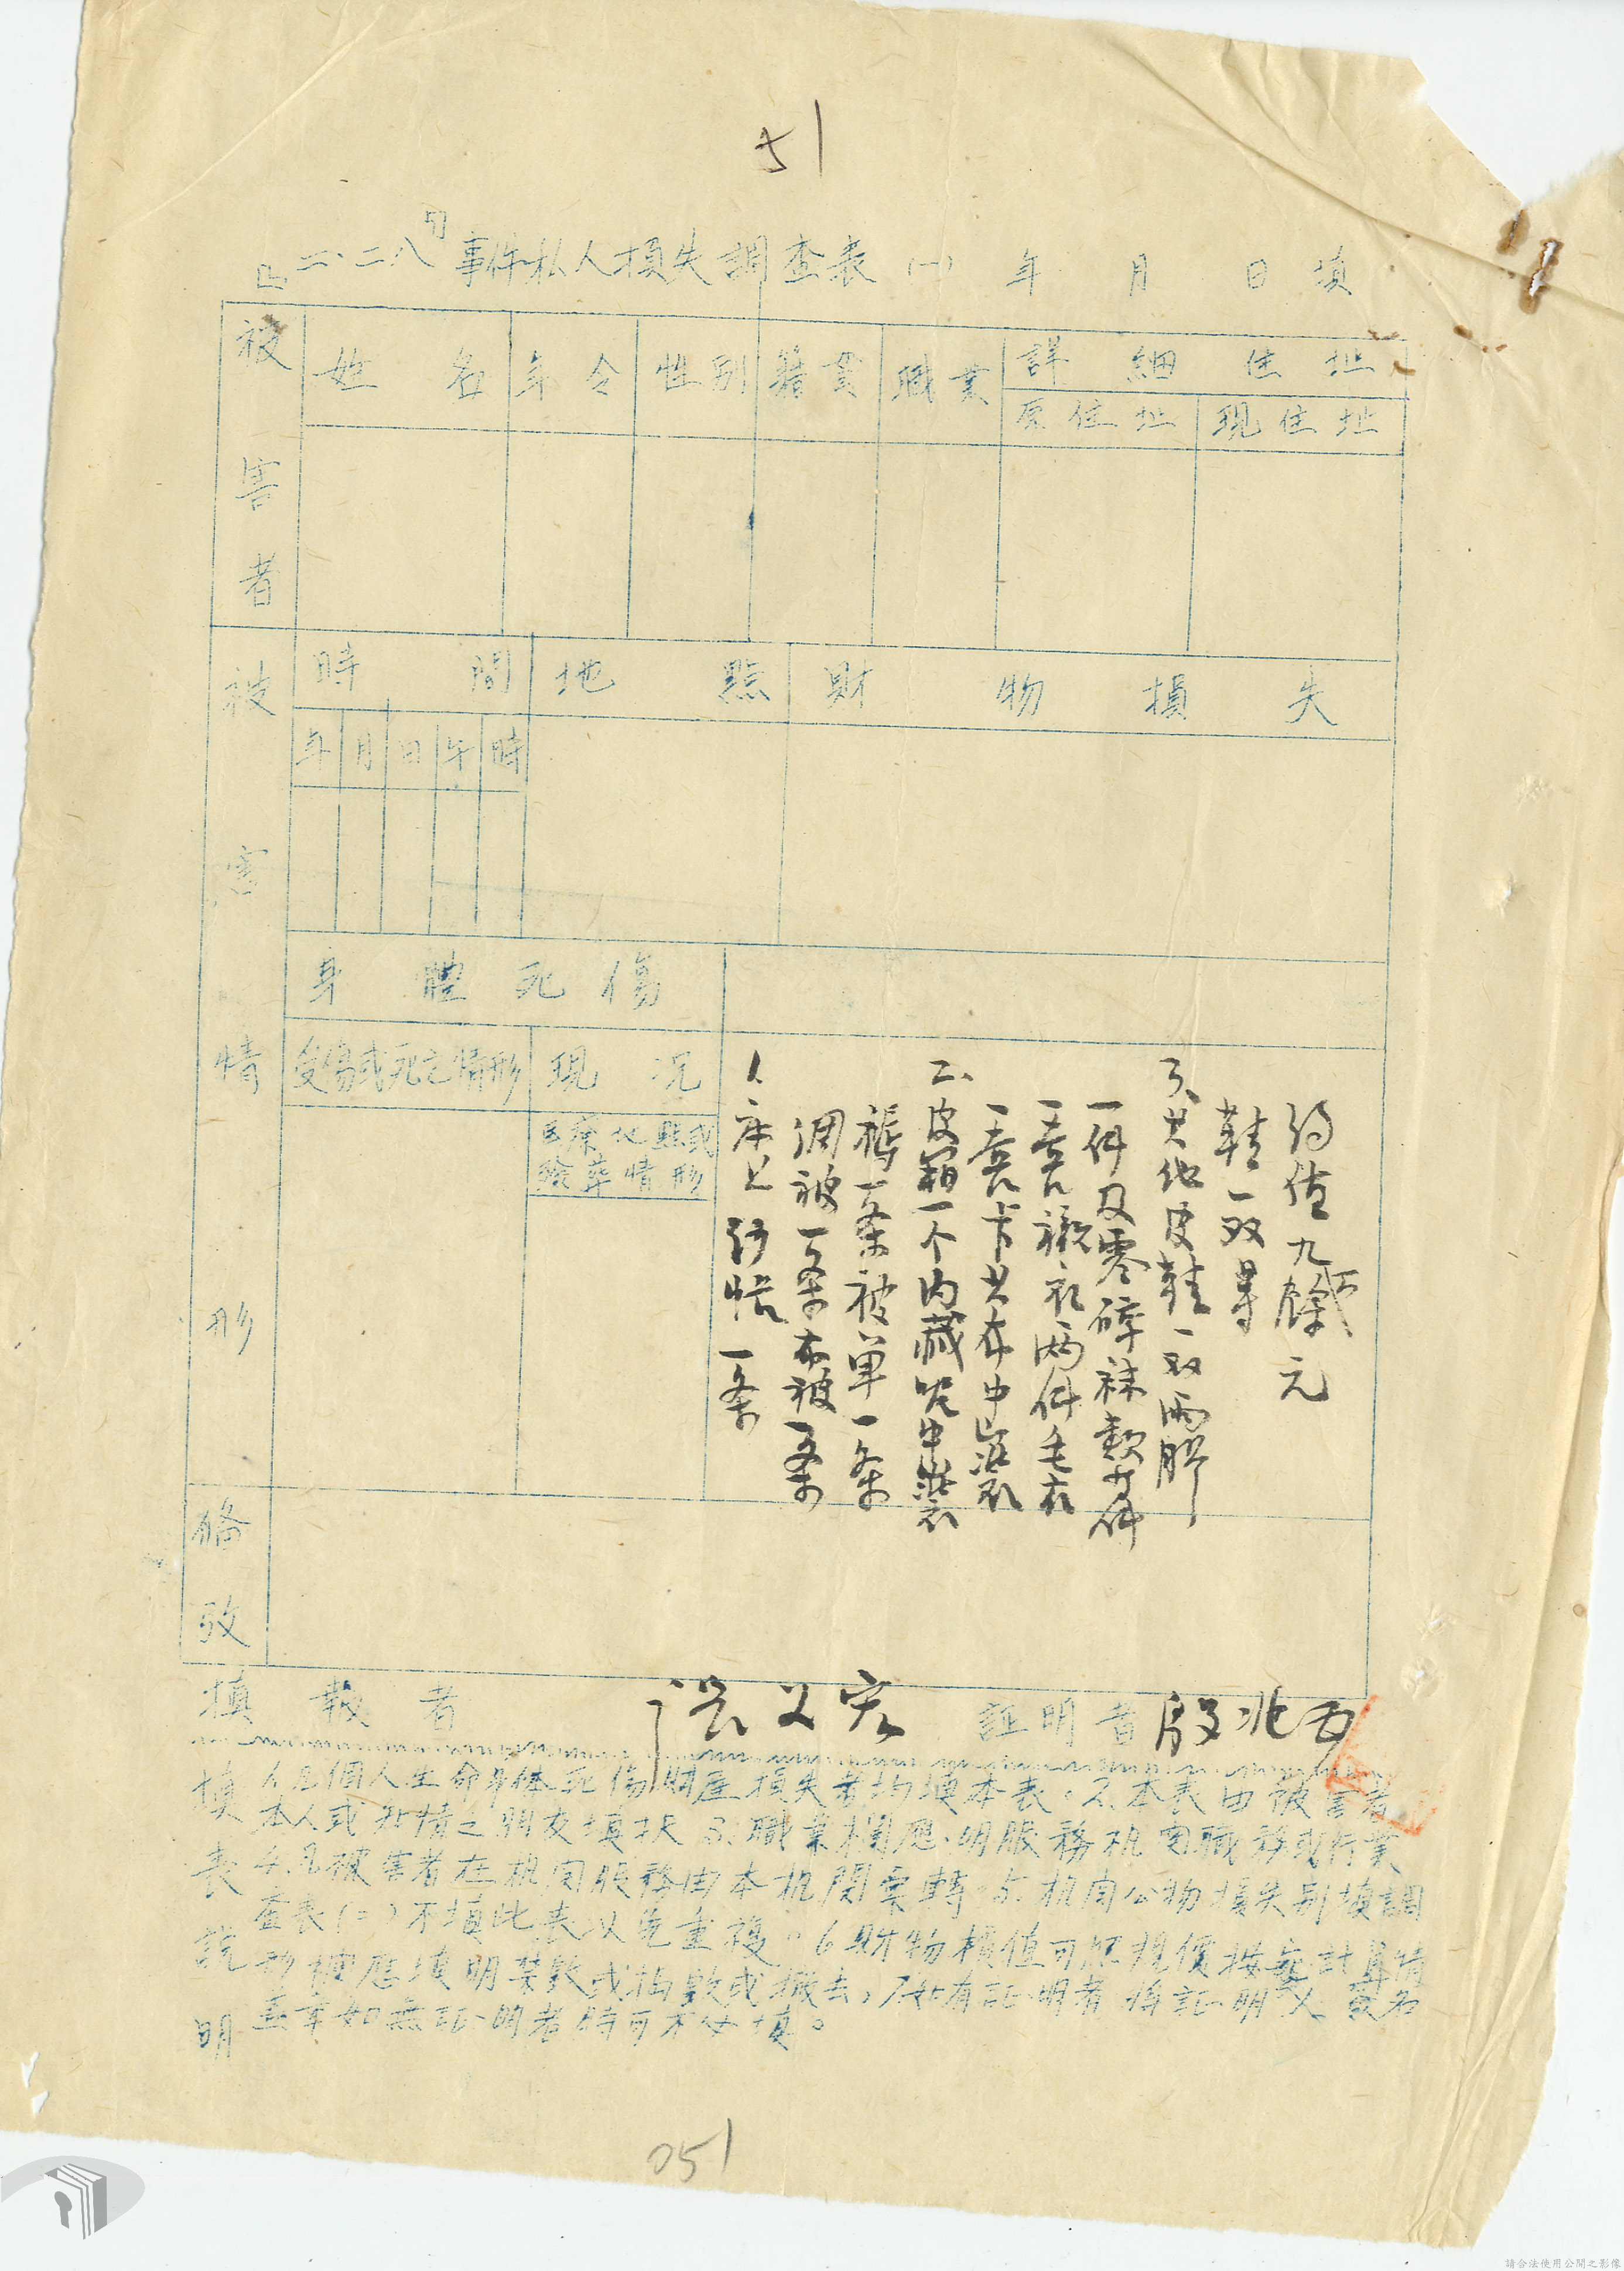 51
「二.二八」事件私人損失調查表(一) 年 月 日填
被害者
姓名
年令
性別
籍貫
職業
詳細住址
原住址
現住址
被害情形
時間
地點
財物損失
年
月
日
午
時
身體死傷
受傷或死亡情形
現況
医療地點或
殮葬情形
1、床上 紗帳一条
綢被一条布被一条
褥一条被單一条
二、皮箱一个內藏呢中山裝
一套卡其布中山裝
一套襯衣兩件毛衣
一件及零碎襪類等件
3、其他皮鞋一双雨膠
鞋一双等
約值九千餘元
備攷
填報者
証明者 殷兆
填表說明
1.凡個人生命身体死傷財產損失者均填本表。2.本表由被害者
本人或知情之朋友填報 3.職業欄應 明服務机関職務或行業
4.凡被害者在机関服務由本机関彙轉 5.机関公物損失別填調
查表(二)不填此表以免重複。6.財物損值可照現價折 計算情
形欄應填明某數或搗毀或搬去,7.如有証明者将証明人 名
蓋章如無証明者時可不必填。
051
請合法使用公開之影像